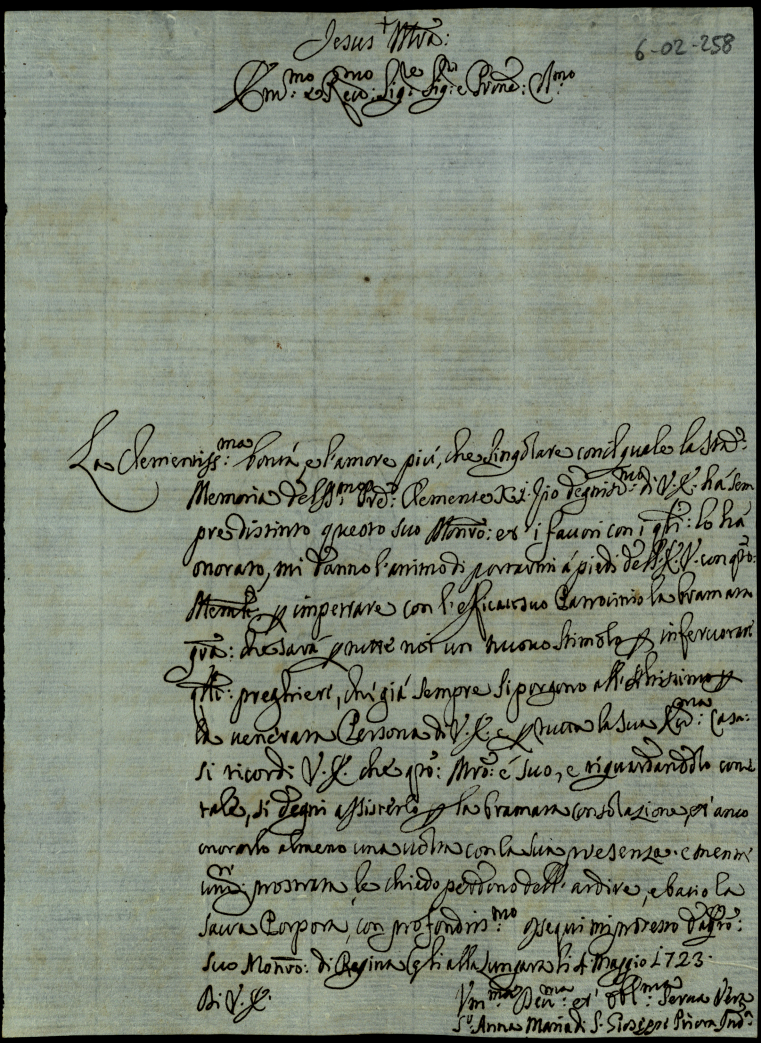 Jesus + Mrã:
6-02-258
Em:mo e Rev:mo Sig:re Sig:re e Prone: Col:mo
La Clementiss:ma bontà e l'amore più, che singolare con il quale la Sta:
Memoria del Clemente XI. Zio degnis:mo di V.E. há sem
pre distinto questo suo Monro: et i favori con i qlli: lo há
onorato, mi danno l'animo di portarmi á piedi dell'E.V. con qto:
p impetrare con l'efficace suo Patrocinio la bramata
gra: che sará p tutte noi un nuovo stimolo p infervorare
qlle: preghiere, che giá sempre si porgono all'Altissimo p
la venerata Persona di V.E. e p tutta la sua Casa:
si ricordi V.E. che qto: Mro: é suo, e riguardandolo come
tale, si degni assisterlo p la bramata consolazione, et anco
onorarlo almeno una volta con la sua presenza. e mentre
prostrata le chiedo perdono dell'ardire, e bacio la
sacra Porpora, con profondis:mo ossequi mi protesto dal qto:
suo Monro: di Regina Celi alla Lungara li 4 Maggio 1723.
Di V.E.
Um:ma Dev:ma et obl:ma Serva Vera
Sr Anna Maria di S. Gioseppe Priora Ind:a